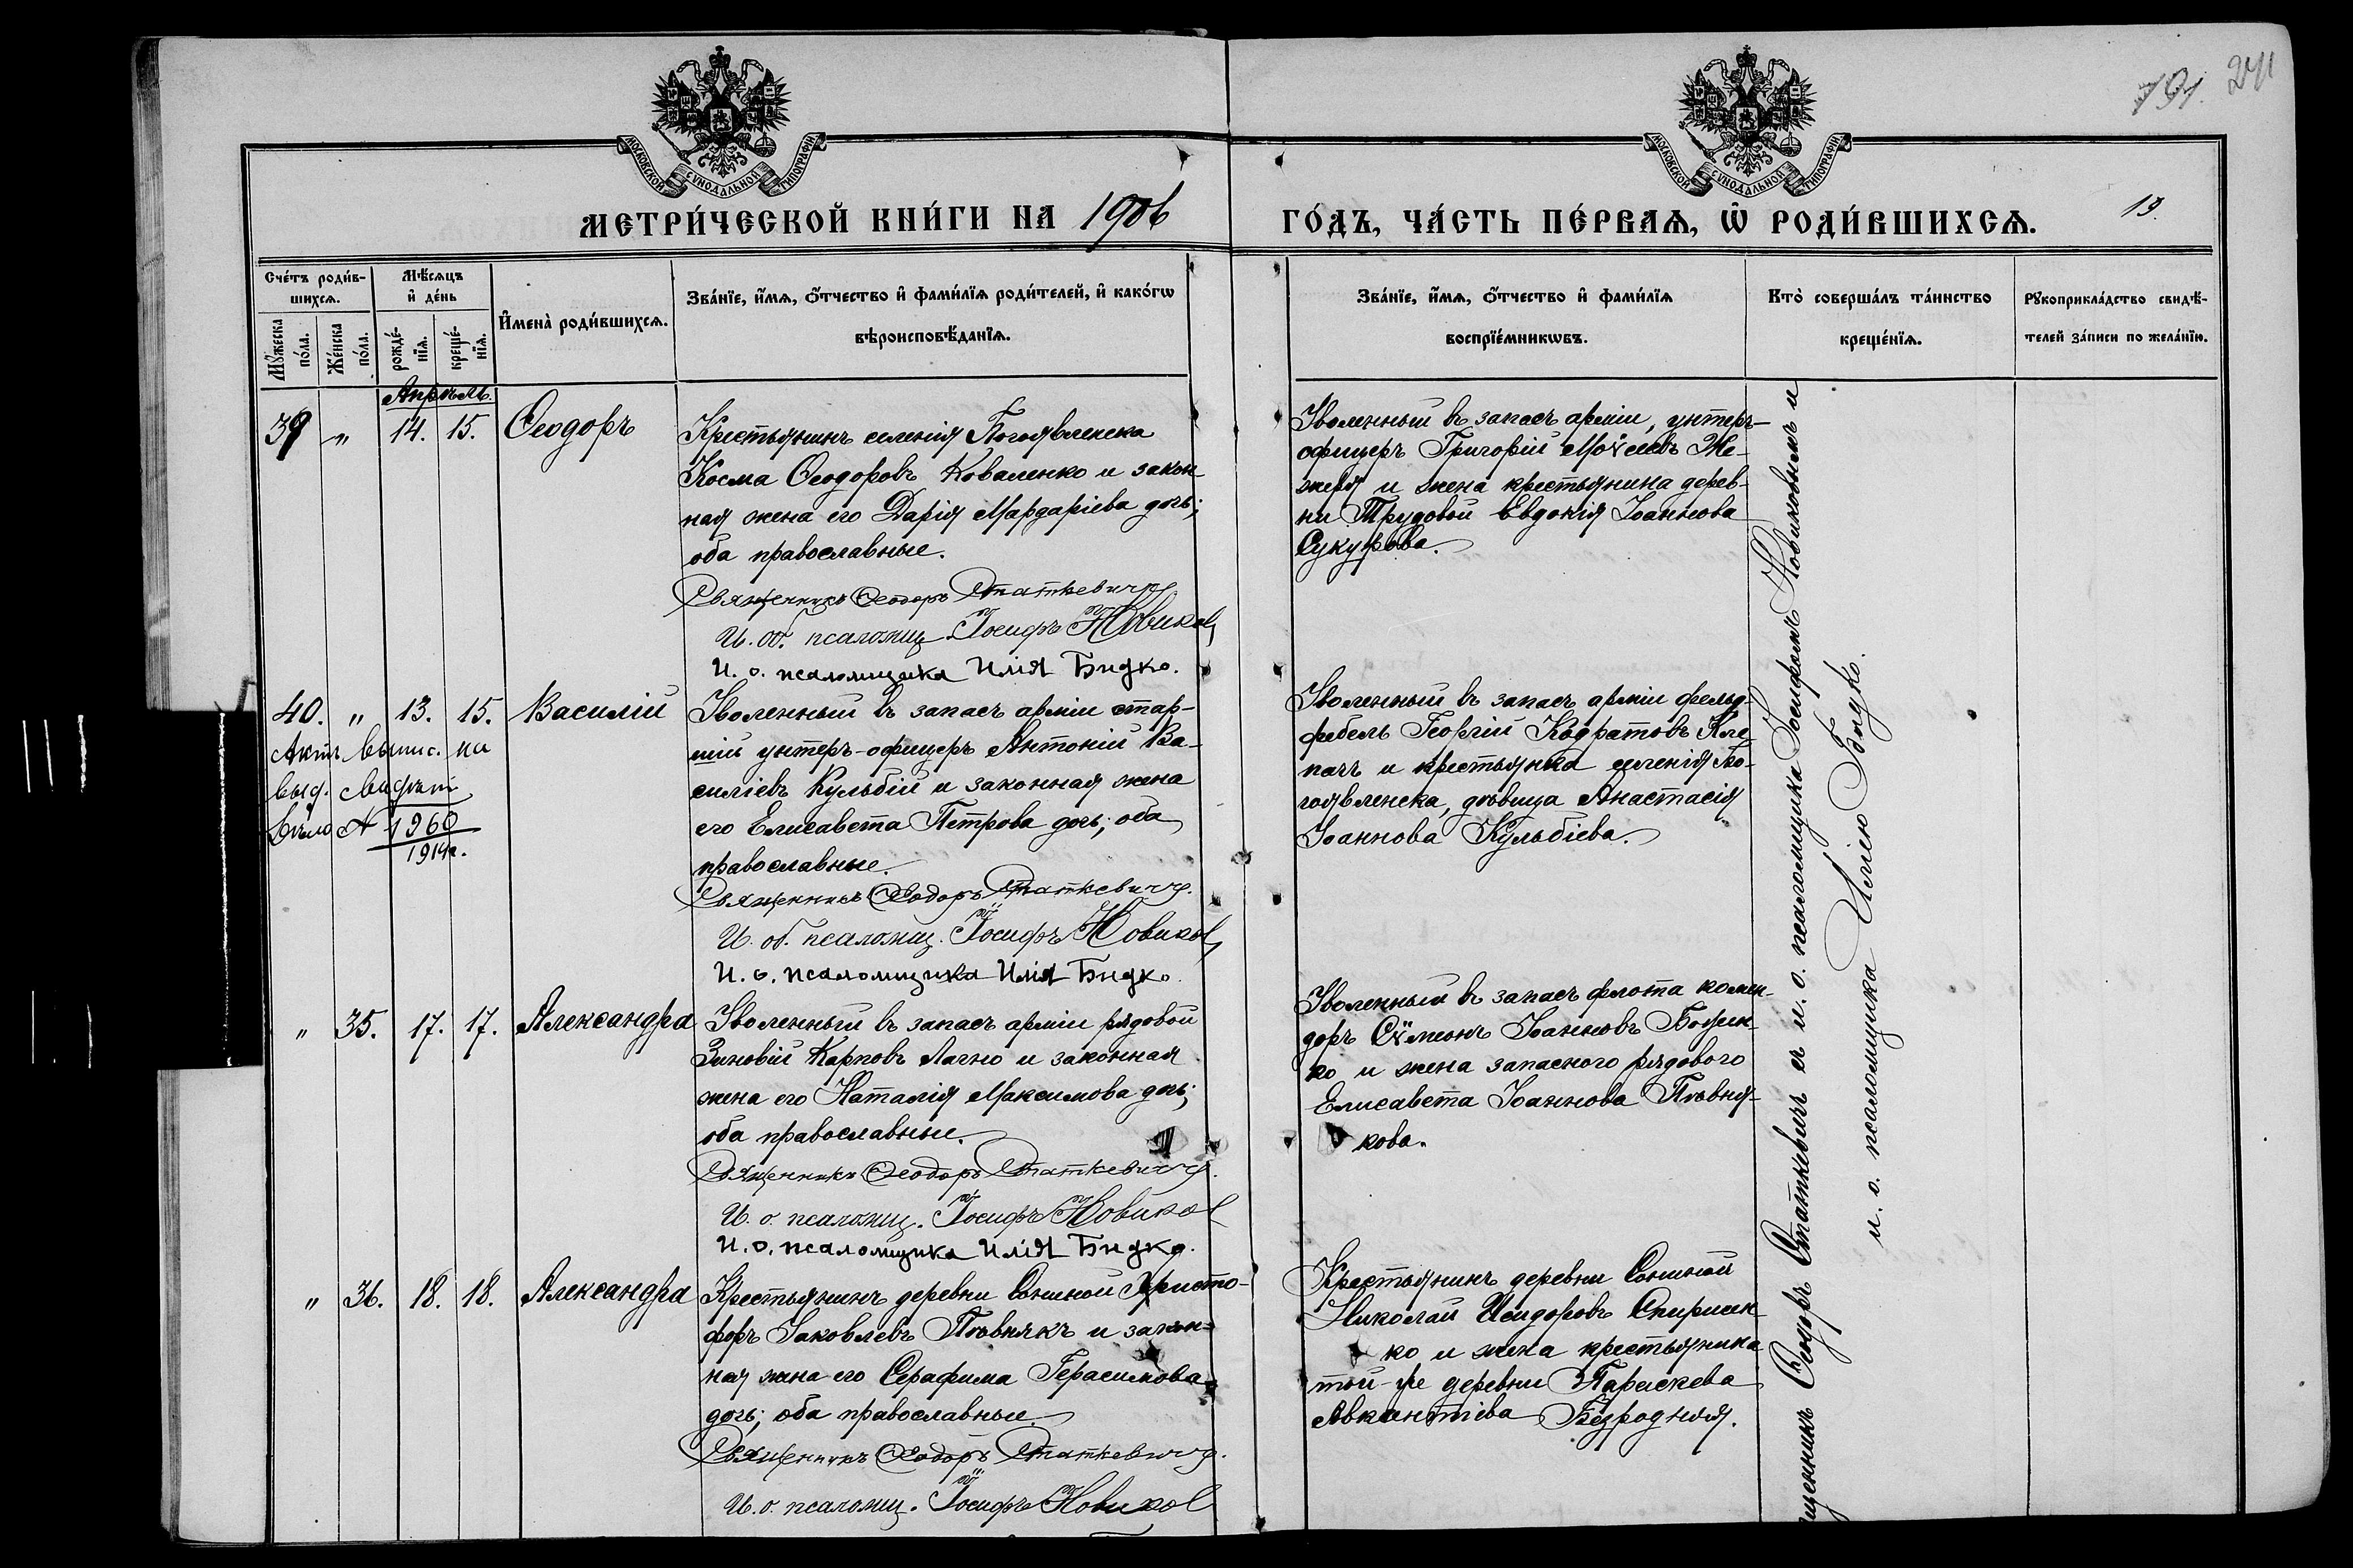 191. 241
МОСКОВСКОЙ СѴНОДАЛЬНОЙ ТИПОГРАФІИ
МОСКОВСКОЙ СѴНОДАЛЬНОЙ ТИПОГРАФІИ
МЕТРИ́ЧЕСКОЙ КНИ́ГИ НА 1906
ГО́ДЪ, ЧА́СТЬ ПЕ́РВАѦ, Ѡ҆ РОДИ́ВШИХСѦ. 19.
Сче́тъ роди́в-
шихсѧ.
Мꙋ́жеска по́ла.
Же́нска по́ла.
Мѣ́сѧцъ
и҆ де́нь
рожде́-
нїѧ.
креще́-
нїѧ.
И҆мена̀ роди́вшихсѧ.
Зва́нїе, и҆́мѧ, ѻ҆́тчество и҆ фами́лїѧ роди́телей, и҆ како́гѡ
вѣроисповѣ́данїѧ.
Зва́нїе, и҆́мѧ, ѻ҆́тчество и҆ фами́лїѧ
воспрїе́мникѡвъ.
Кто̀ соверша́лъ та́инство
креще́нїѧ.
Рꙋкоприкла́дство свидѣ́-
телей за́писи по жела́нїю.
Апрѣль.
39 „ 14. 15. Ѳеодоръ
Крестьянинъ селенія Богоявленска
Косма Ѳеодоровъ Коваленко и закон-
ная жена его Дарія Мардаріева дочь;
оба православные.
Священникъ Ѳеодоръ Статкевичъ
И. об. псаломщ. Іосифъ Новиковъ
И. о. псаломщика Илія Бидко.
Уволенный въ запасъ арміи, унтеръ-
офицеръ Григорій Моѷсеевъ Же-
жеря и жена крестьянина дерев-
ни Трудовой Евдокія Іоаннова
Сукурова.
40. „ 13. 15. Василій
Актъ выпис. на
выд. свидѣт.
№ 1960
1914 г.
Уволенный въ запасъ арміи стар-
шій унтеръ-офицеръ Антоній Ва-
силіевъ Кульбій и законная жена
его Елисавета Петрова дочь; оба
православные.
Священникъ Ѳеодоръ Статкевичъ.
И. об. псаломщ. Іосифъ Новиковъ
И. о. псаломщика Илія Бидко.
Уволенный въ запасъ арміи фельд-
фебель Георгій Кодратовъ Кле-
пачъ и крестьянка селенія Бо-
гоявленска, дѣвица Анастасія
Іоаннова Кульбіева.
„ 35. 17. 17. Александра
Уволенный въ запасъ арміи рядовой
Зиновій Карповъ Лагно и законная
жена его Наталія Максимова дочь;
оба православные.
Священникъ Ѳеодоръ Статкевичъ.
И. о. псаломщ. Іосифъ Новиков
И. о. псаломщика Илія Бидко.
Уволенный въ запасъ флота комен-
доръ Сѷмеонъ Іоанновъ
ко и жена запасного рядового
Елисавета Іоаннова Пѣвня-
кова.
„ 36. 18. 18. Александра
Крестьянинъ деревни Христо-
форъ Іаковлевъ Пѣвнякъ и закон-
ная жена его Серафима Герасимова
дочь; оба православные.
Священникъ Ѳеодоръ Статкевичъ.
И. о. псаломщ. Іосифъ Новиков
Крестьянинъ деревни
Николай Исидоровъ Спиришен-
ко и жена крестьянина
той-же деревни Параскева
Авксентіева Безродняя.
Священникъ Ѳеодоръ Статкевичъ съ и. о. псаломщика Іосифомъ Новиковымъ и
и. о. псаломщика Иліею Бидко.